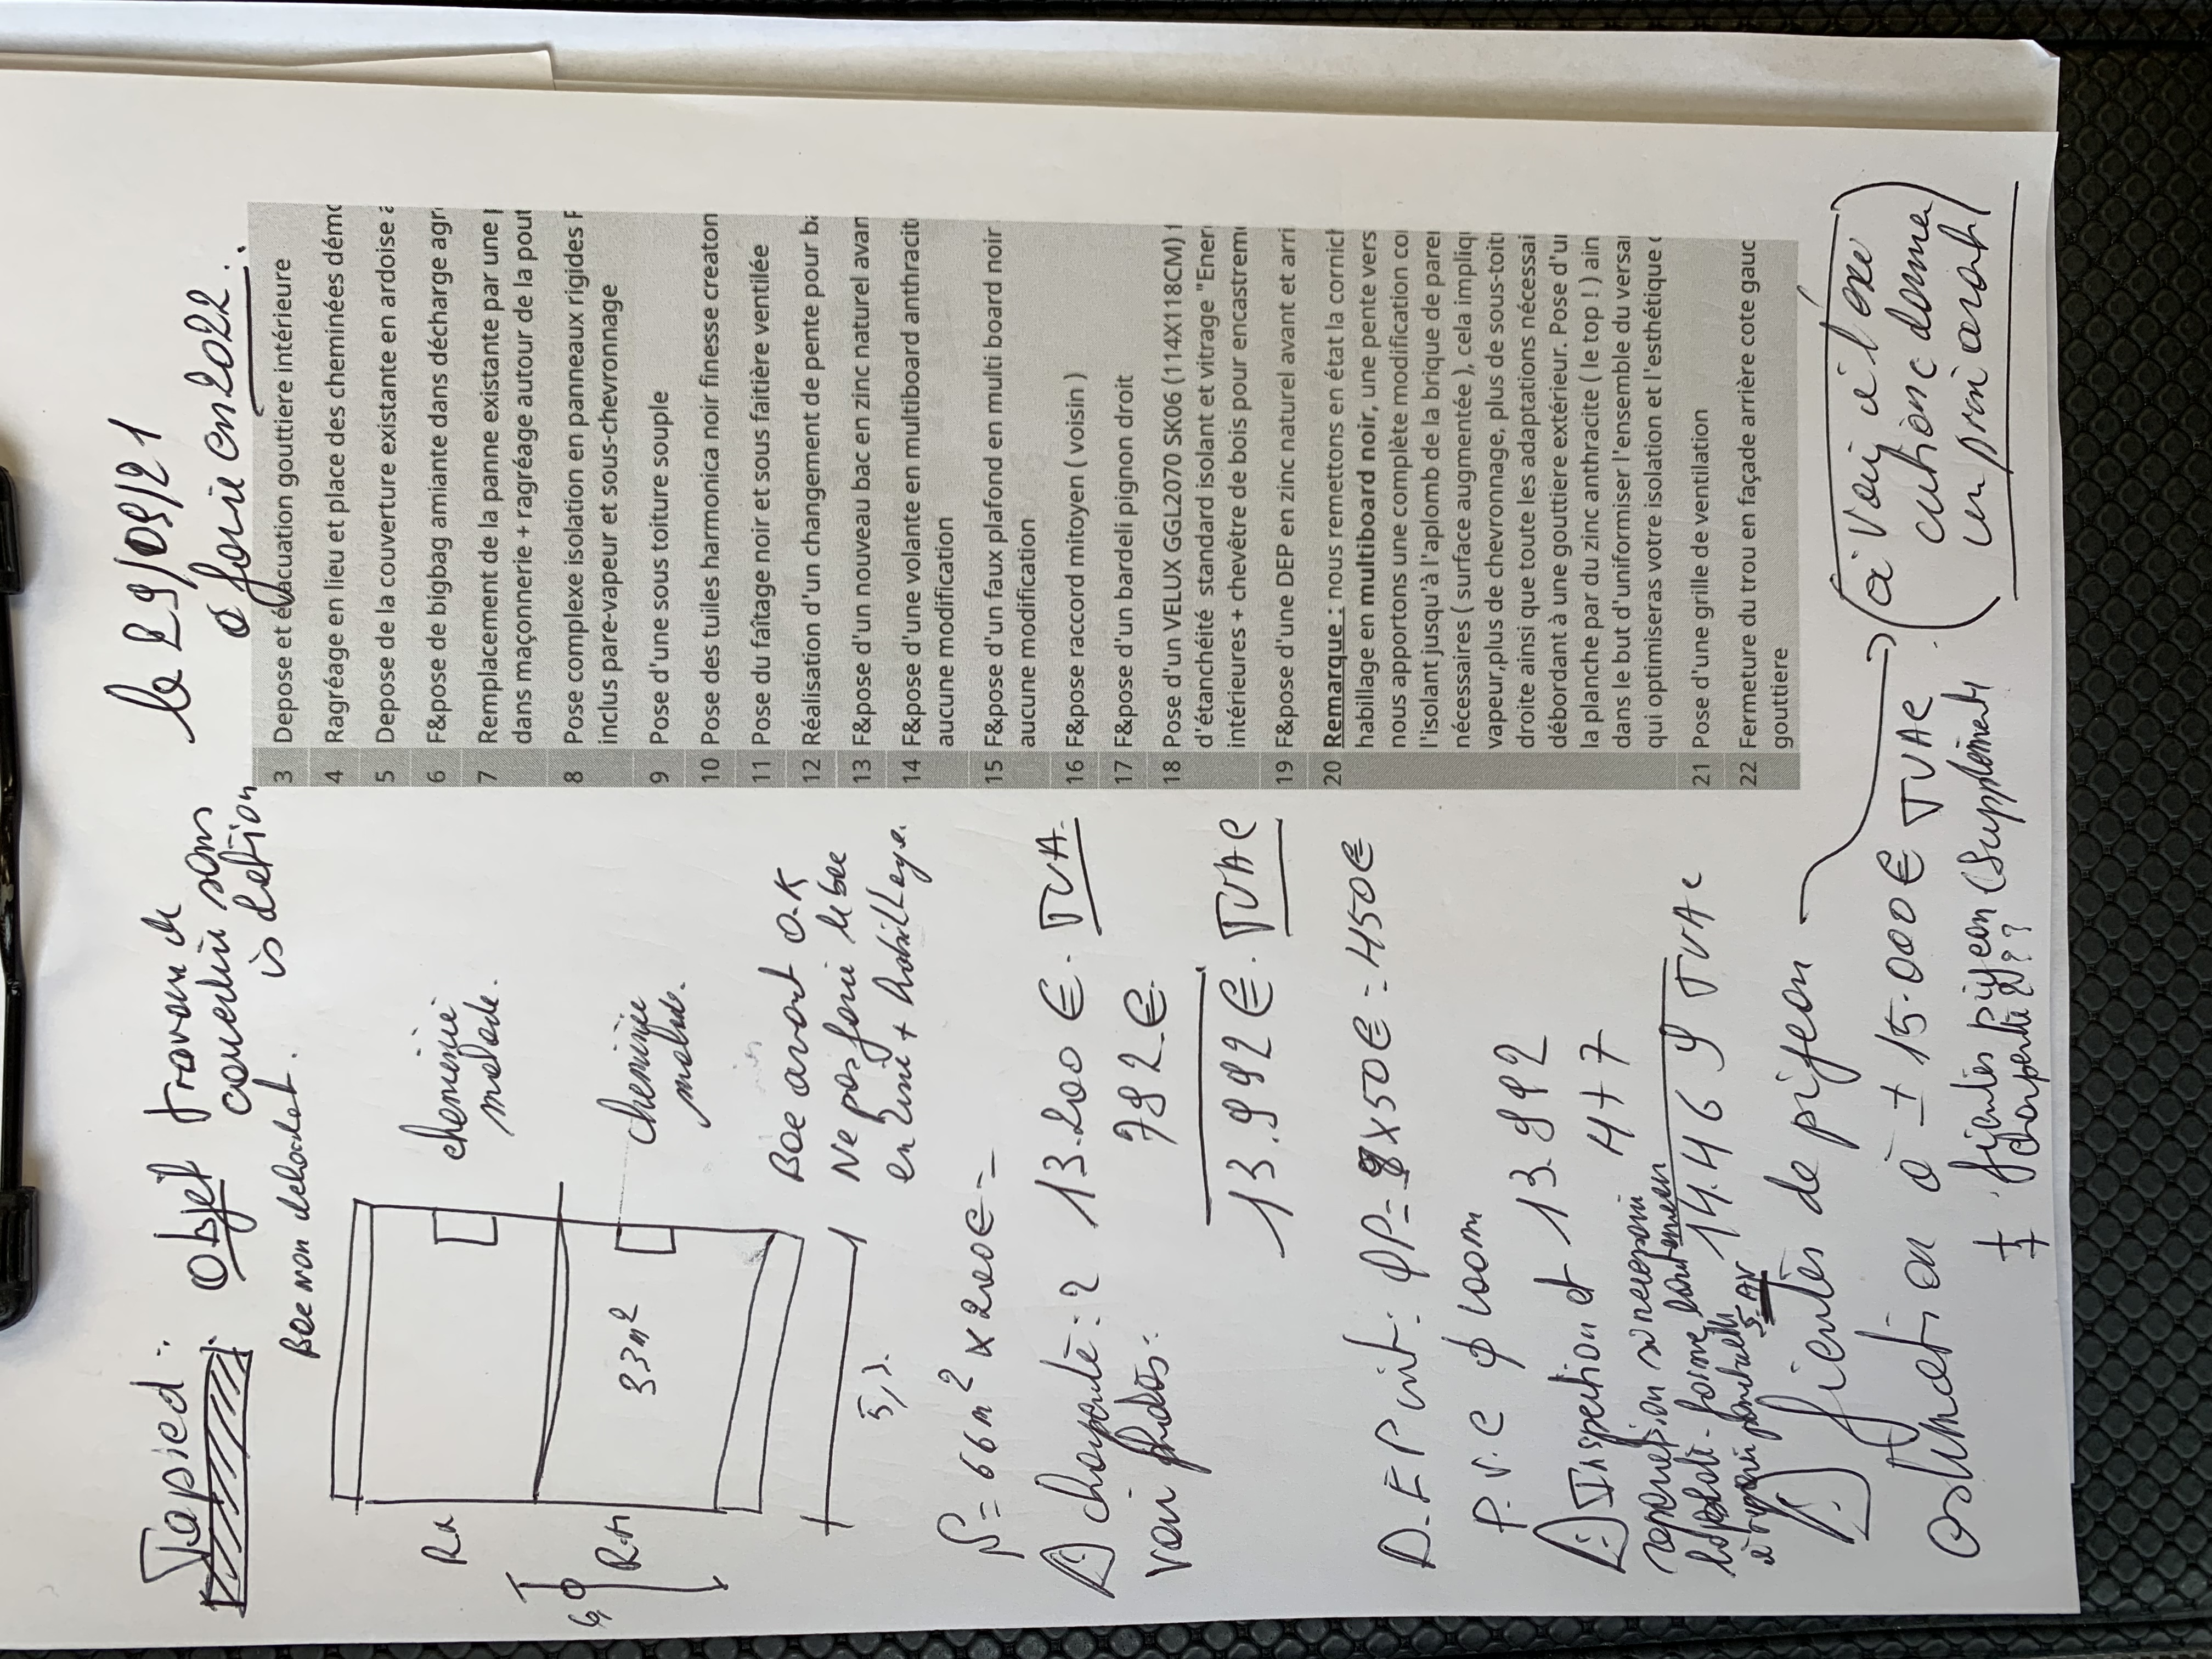 Tapied : Objet travaux de
couverture sans
isolation
le 29/09/21
a faire en 2022.
Bac non debordant.
cheminée
malade.
cheminée
malade.
33m²
5,2
Bac avant O.K
Ne pas faire le bac
en zinc + habillage.
S = 66m² x 200€ =
charpente : ? 13.200 €. TVA.
voir photos. 792 €
13.992 €. TVAC
D.E.P int : 9 x 50€ = 450€
P.V.C ϕ 100m
Inspection et 13.992
réparation si nécessaire 477
14.469 TVAC
plate-forme
fientes de pigeon
(à voir à l'exé
cution donner
un prix avant)
estimation à ± 15.000€ TVAC
+ fientes pigeon (supplément)
charpente ???
3 Depose et évacuation gouttiere intérieure
4 Ragréage en lieu et place des cheminées démo
5 Depose de la couverture existante en ardoise a
6 F&pose de bigbag amiante dans décharge agr
7 Remplacement de la panne existante par une
dans maçonnerie + ragréage autour de la pout
8 Pose complexe isolation en panneaux rigides
inclus pare-vapeur et sous-chevronnage
9 Pose d'une sous toiture souple
10 Pose des tuiles harmonica noir finesse creaton
11 Pose du faîtage noir et sous faitière ventilée
12 Réalisation d'un changement de pente pour ba
13 F&pose d'un nouveau bac en zinc naturel avan
14 F&pose d'une volante en multiboard anthracit
aucune modification
15 F&pose d'un faux plafond en multi board noir
aucune modification
16 F&pose raccord mitoyen ( voisin )
17 F&pose d'un bardeli pignon droit
18 Pose d'un VELUX GGL2070 SK06 (114X118CM)
d'étanchéité standard isolant et vitrage "Ener
intérieures + chevêtre de bois pour encastreme
19 F&pose d'une DEP en zinc naturel avant et arri
20 Remarque : nous remettons en état la cornich
habillage en multiboard noir, une pente vers
nous apportons une complète modification co
l'isolant jusqu'à l'aplomb de la brique de pare
nécessaires ( surface augmentée ), cela impliq
vapeur,plus de chevronnage, plus de sous-toit
droite ainsi que toute les adaptations nécessai
débordant à une gouttiere extérieur. Pose d'u
la planche par du zinc anthracite ( le top ! ) ain
dans le but d'uniformiser l'ensemble du versa
qui optimiseras votre isolation et l'esthétique
21 Pose d'une grille de ventilation
22 Fermeture du trou en façade arrière cote gauc
gouttiere